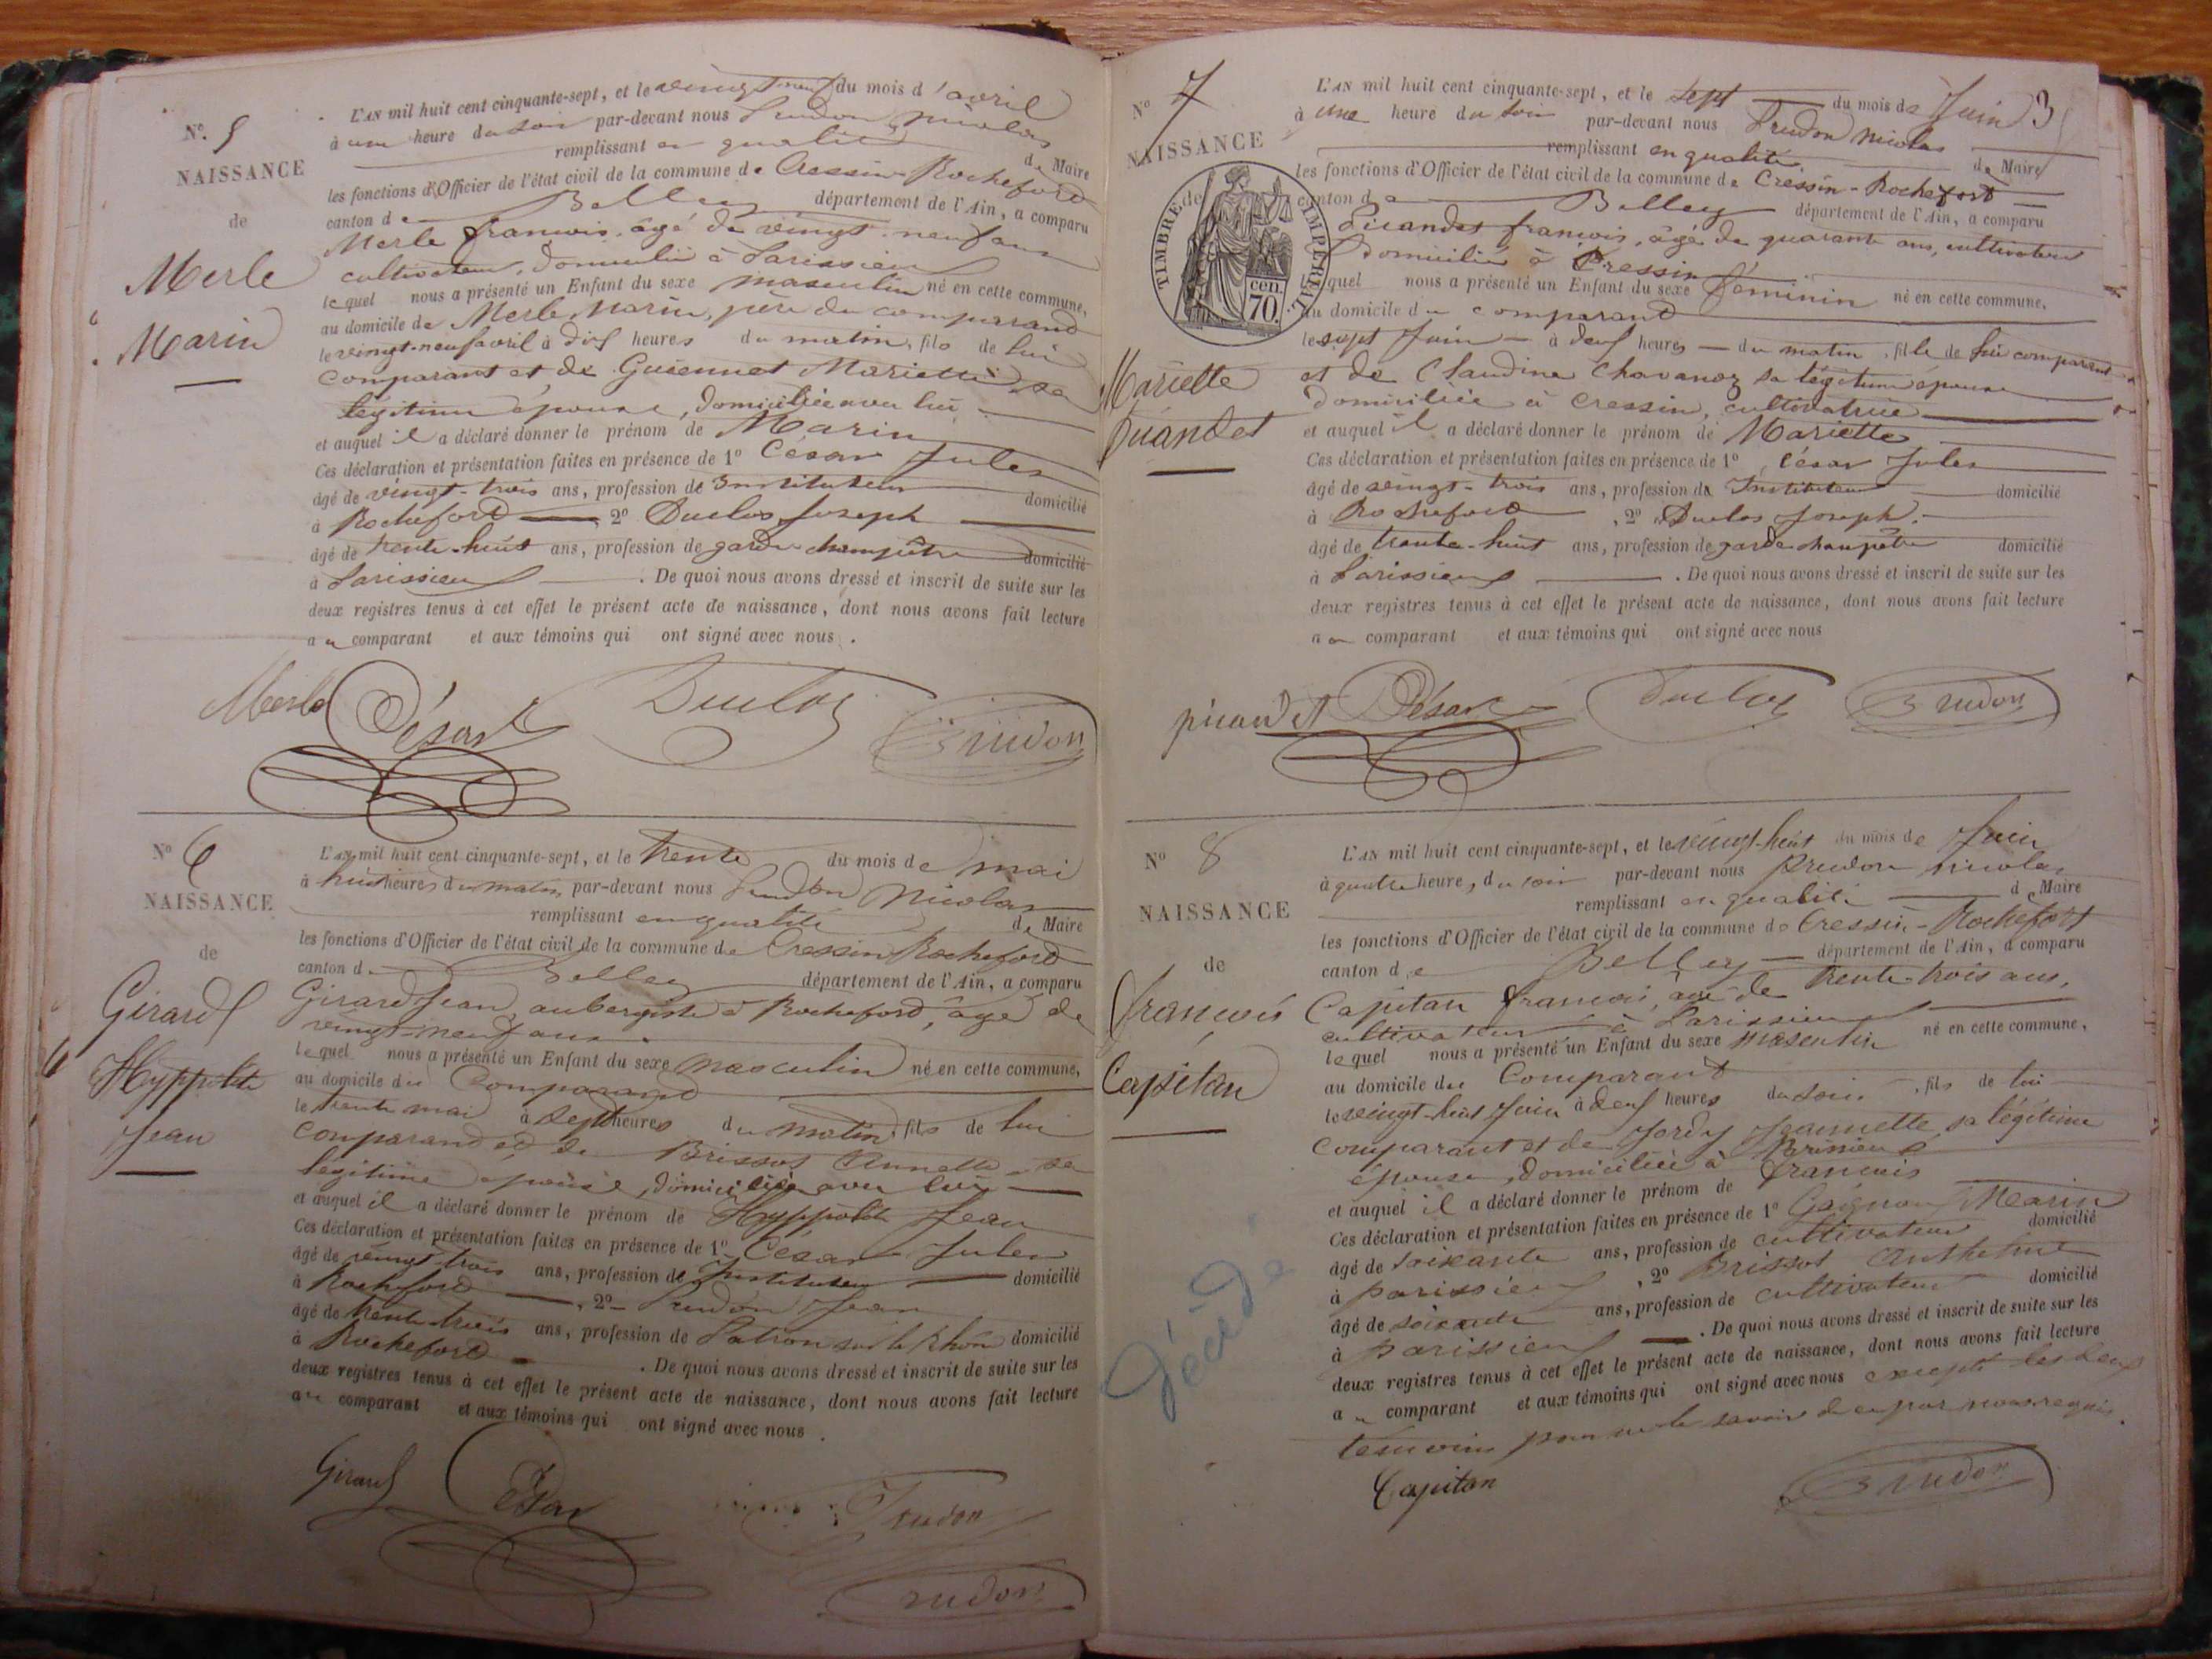 N° 5
NAISSANCE
de
Merle
Marin
L'AN mil huit cent cinquante-sept, et le vingt neuf du mois d'avril
à une heure du soir par-devant nous Prudon Nicolas
remplissant en qualité de Maire
les fonctions d'Officier de l'état civil de la commune de Cressin-Rochefort
canton de Belley département de l'Ain, a comparu
Merle francois, âgé de vingt-neuf ans
cultivateur, domicilié à Parissieu
lequel nous a présenté un Enfant du sexe masculin né en cette commune,
au domicile de Merle Marin, père du comparand
le vingt-neuf avril à dix heures du matin, fils de lui
comparant et de Guiennet Mariette, sa
légitime épouse, domiciliée avec lui
et auquel il a déclaré donner le prénom de Marin
Ces déclaration et présentation faites en présence de 1° César Jules
âgé de vingt-trois ans, profession de Instituteur domicilié
à Rochefort, 2° Duclos Joseph
âgé de trente-huit ans, profession de garde champêtre domicilié
à Parissieu. De quoi nous avons dressé et inscrit de suite sur les
deux registres tenus à cet effet le présent acte de naissance, dont nous avons fait lecture
au comparant et aux témoins qui ont signé avec nous.
Merle César Duclos Prudon
N° 6
NAISSANCE
de
Girard
Hyppolite
Jean
L'AN mil huit cent cinquante-sept, et le trente du mois de mai
à huit heures du matin par-devant nous Prudon Nicolas
remplissant en qualité de Maire
les fonctions d'Officier de l'état civil de la commune de Cressin Rochefort
canton de Belley département de l'Ain, a comparu
Girard Jean, aubergiste à Rochefort, âgé de
vingt-neuf ans
lequel nous a présenté un Enfant du sexe masculin né en cette commune,
au domicile du Comparand
le trente mai à sept heures du matin fils de lui
comparand et de Brissot Annette sa
légitime épouse, domiciliée avec lui
et auquel il a déclaré donner le prénom de Hyppolite Jean
Ces déclaration et présentation faites en présence de 1° César Jules
âgé de vingt-trois ans, profession de Instituteur domicilié
à Rochefort, 2° Prudon Jean
âgé de trente trois ans, profession de Patron sur le Rhône domicilié
à Rochefort. De quoi nous avons dressé et inscrit de suite sur les
deux registres tenus à cet effet le présent acte de naissance, dont nous avons fait lecture
au comparant et aux témoins qui ont signé avec nous.
Girard César Prudon
Prudon
3
N° 7
NAISSANCE
de
TIMBRE IMPÉRIAL
70 cen.
Mariette
Picandet
L'AN mil huit cent cinquante-sept, et le sept du mois de Juin
à une heure du soir par-devant nous Prudon Nicolas
remplissant en qualité de Maire
les fonctions d'Officier de l'état civil de la commune de Cressin-Rochefort
canton de Belley département de l'Ain, a comparu
Picandet francois, âgé de quarante ans, cultivateur
domicilié à Cressin
lequel nous a présenté un Enfant du sexe féminin né en cette commune.
au domicile du comparant
le sept Juin à deux heures du matin, fille de lui comparant
et de Claudine Chavanoz sa légitime épouse
domiciliée à Cressin, cultivatrice
et auquel il a déclaré donner le prénom de Mariette
Ces déclaration et présentation faites en présence de 1° César Jules
âgé de vingt-trois ans, profession de Instituteur domicilié
à Rochefort, 2° Duclos Joseph.
âgé de trente-huit ans, profession de garde champêtre domicilié
à Parissieu. De quoi nous avons dressé et inscrit de suite sur les
deux registres tenus à cet effet le présent acte de naissance, dont nous avons fait lecture
au comparant et aux témoins qui ont signé avec nous
picandet César Duclos Prudon
N° 8
NAISSANCE
de
francois
Capitan
Décédé
L'AN mil huit cent cinquante-sept, et le vingt-huit du mois de Juin
à quatre heures du soir par-devant nous Prudon Nicolas
remplissant en qualité de Maire
les fonctions d'Officier de l'état civil de la commune de Cressin-Rochefort
canton de Belley département de l'Ain, a comparu
Capitan francois, âgé de trente-trois ans,
cultivateur à Parissieu
lequel nous a présenté un Enfant du sexe masculin né en cette commune,
au domicile du Comparant
le vingt-huit Juin à deux heures du soir, fils de lui
comparant et de Jordy Jeannette sa légitime
épouse, domiciliée à Parissieu
et auquel il a déclaré donner le prénom de francois
Ces déclaration et présentation faites en présence de 1° Gagnon Marin
âgé de soixante ans, profession de cultivateur domicilié
à parissieu, 2° Brissot Anthelme
âgé de soixante ans, profession de cultivateur domicilié
à parissieu. De quoi nous avons dressé et inscrit de suite sur les
deux registres tenus à cet effet le présent acte de naissance, dont nous avons fait lecture
au comparant et aux témoins qui ont signé avec nous excepté les deux
témoins pour ne le savoir de ce par nous requis.
Capitan Prudon